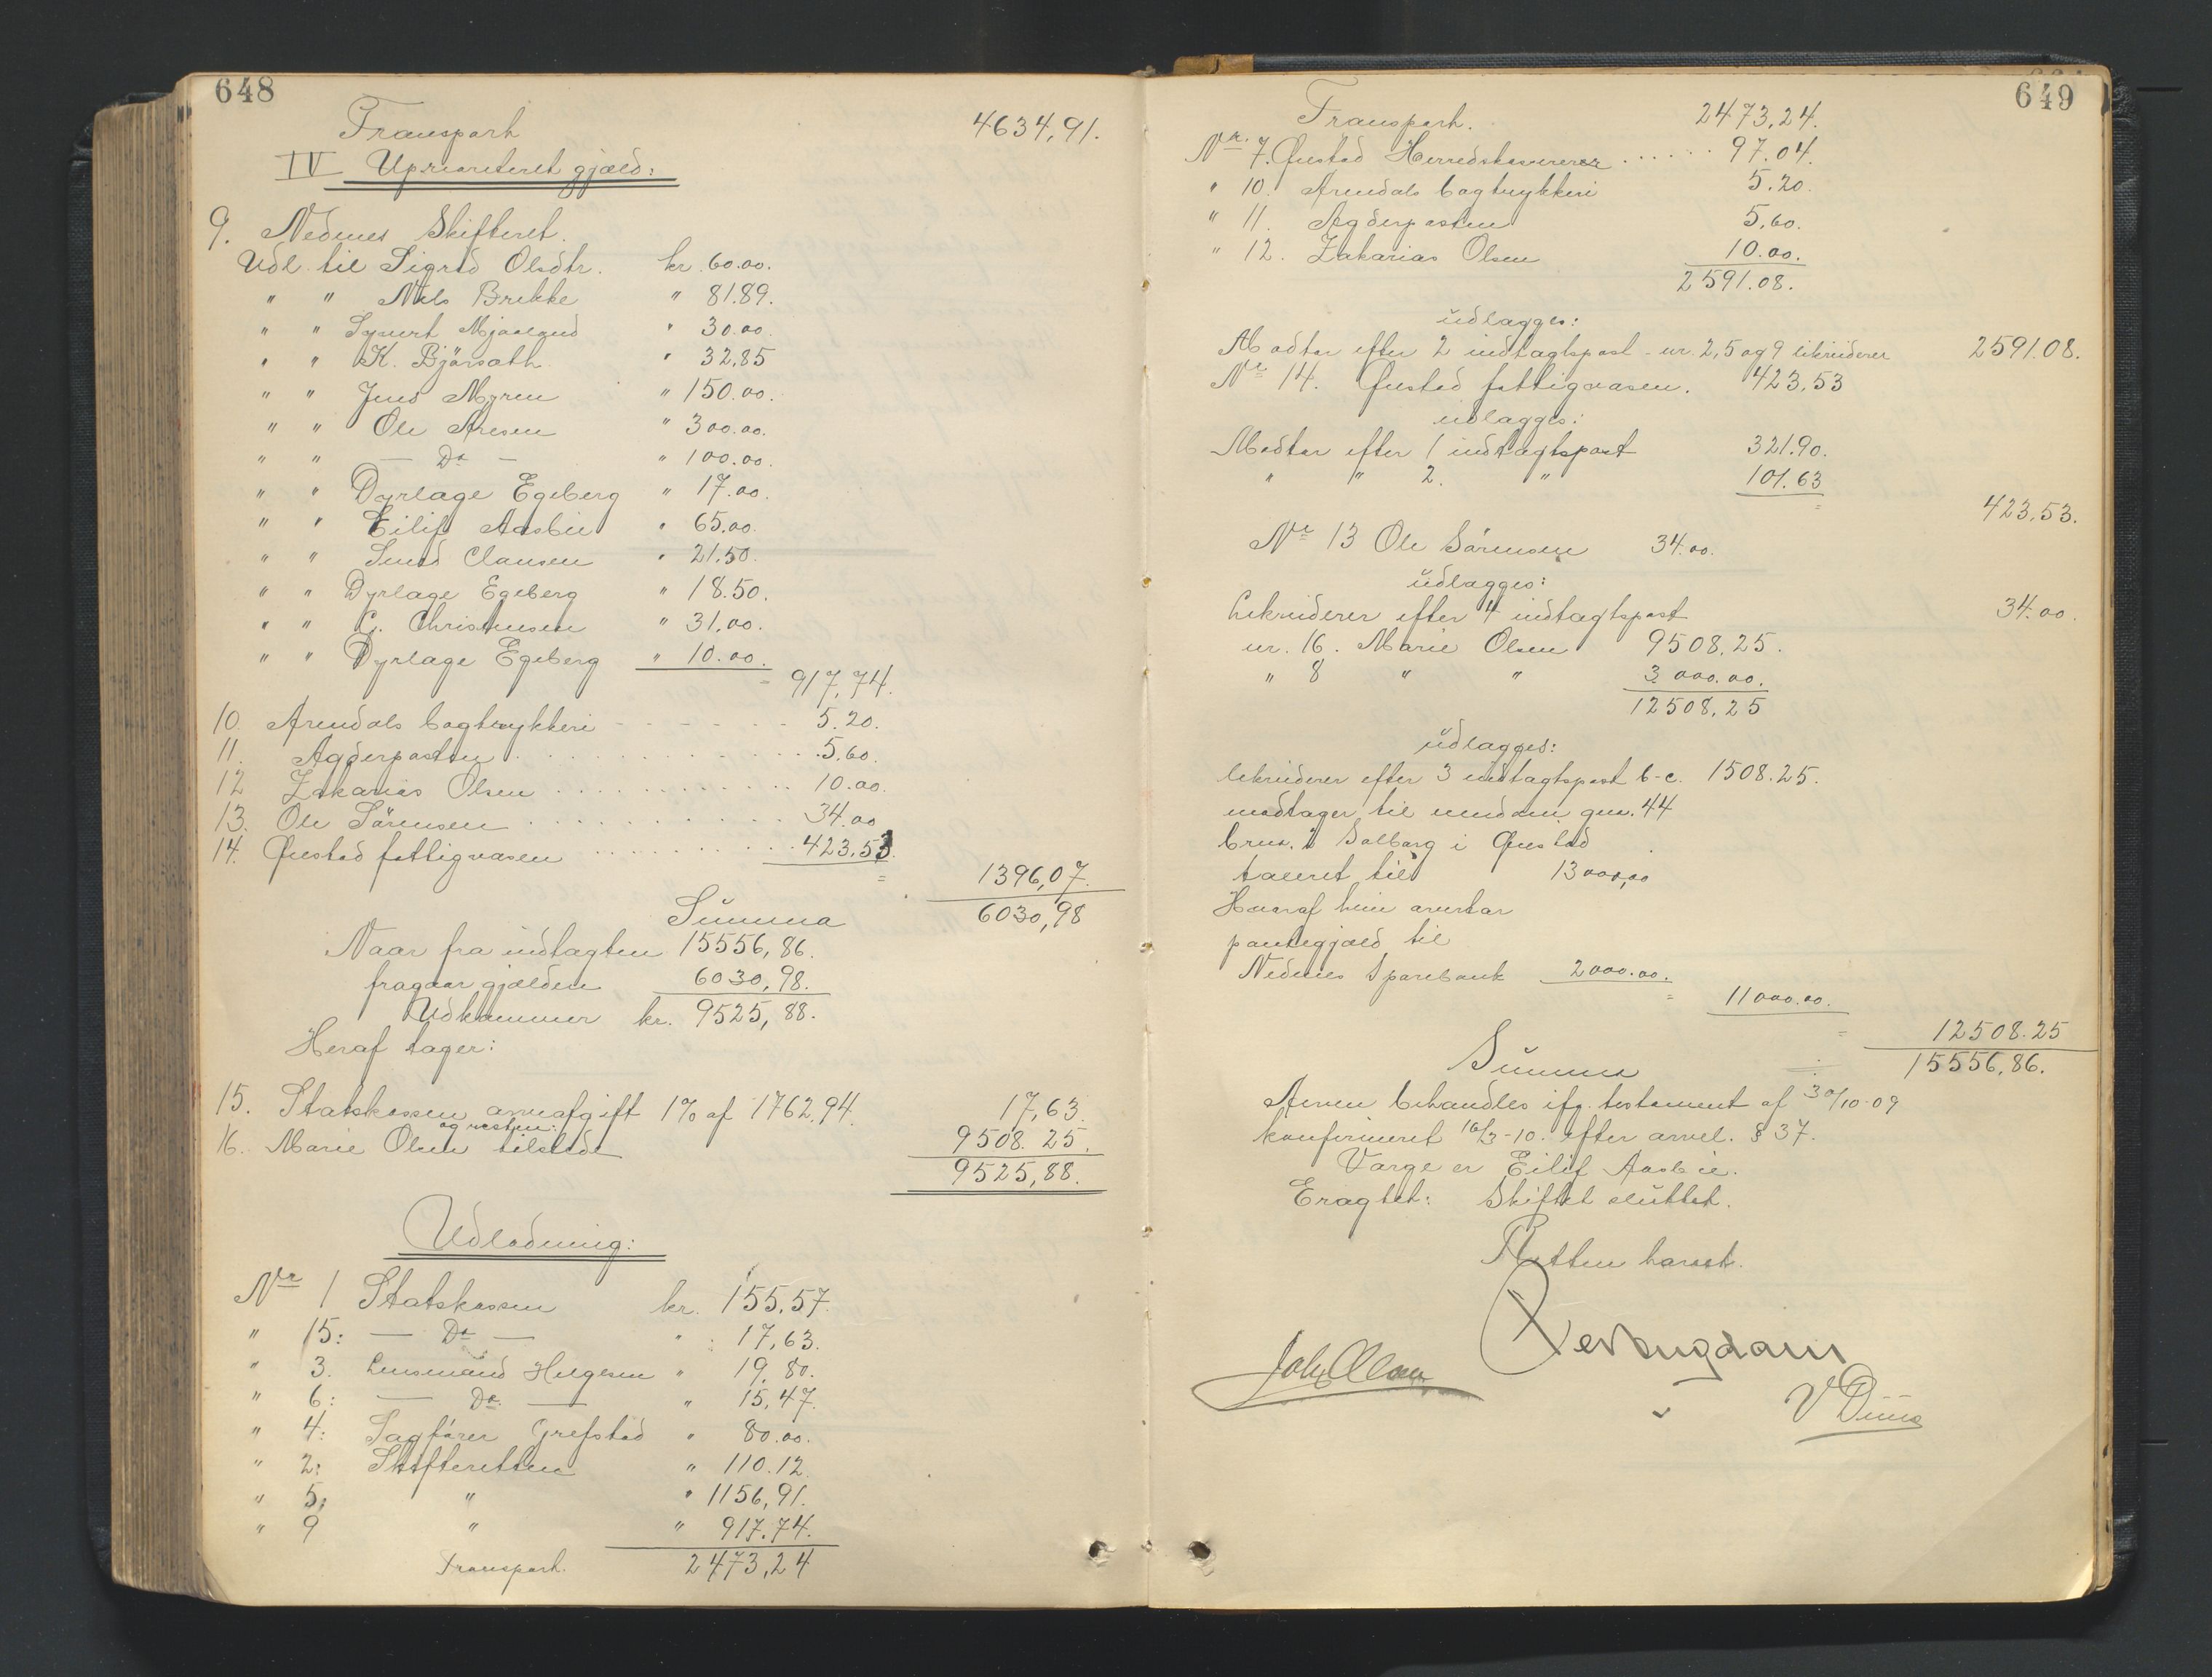 648
Transport 4634,91.
IV Uprioriteret gjæld:
9. Nedenes Skifteret.
Udl. til Sigrid Olsdtr. kr. 60.00.
" " Nils Brekke " 81.89.
" " Syvert Mjaaland " 30.00.
" " K. Bjørsath " 32,85
" " Jens Myren " 150.00.
" " Ole Aresen " 300.00.
" " — Do — " 100.00.
" " Dyrlæge Egeberg " 17.00.
" " Eilif Aasbie " 65.00.
" " Smed Clausen " 21.50.
" " Dyrlæge Egeberg " 18.50.
" " C. Christensen " 31.00.
" " Dyrlæge Egeberg " 10.00.
= 917,74.
10. Arendals bogtrykkeri 5.20.
11. Agderposten 5.60.
12 Zakarias Olsen 10.00.
13. Ole Sørensen 34.00
14. Øiestad fattigvæsen 423.53.
= 1396,07.
Summa 6030,98
Naar fra indtægten 15556,86.
fragaar gjælden 6030,98.
Udkommer kr. 9525,88.
Heraf tager:
15. Statskassen arveafgift 1% af 1762.94. 17,63.
og resten:
16. Marie Olsen tilstede 9508.25.
9525,88.
Udlodning:
Nr 1 Statskassen kr. 155.57.
" 15: — Do — " 17,63.
" 3. Lensmand Helgesen " 19,80.
" 6: — Do — " 15,47.
" 4: Sagfører Grefstad " 80.00.
" 2: Skifteretten " 110.12.
" 5: " " 1156,91.
" 9 " " 917.74.
Transport. 2473,24
649
Transport. 2473,24.
Nr. 7. Øiestad Herredskasserer 97.04.
" 10. Arendals bogtrykkeri 5.20.
" 11. Agderposten 5,60.
" 12. Zakarias Olsen 10.00.
2591.08.
udlægges:
Modtar efter 2 indtægtspost - nr. 2,5 og 9 likviderer 2591.08.
Nr 14. Øiestad fattigvæsen. 423,53
udlægges:
Modtar efter 1 indtægtspost 321.90.
" " 2. " 101.63
= 423,53.
Nr 13 Ole Sørensen 34.00.
udlægges:
Likviderer efter 4 indtægtspost 34.00.
nr. 16. Marie Olsen 9508.25.
" 8 " " 3000.00.
12508,25
udlægges:
likviderer efter 3 indtægtspost b-c. 1508.25.
modtager til eiendom gnr. 44
brnr. 2 Solborg i Øiestad
taxeret til 13000,00
Hvoraf hun overtar
pantegjæld til
Nedenes Sparebank 2000.00.
= 11000.00.
= 12508.25
Summa 15556,86.
Arven behandles ifg. testament af 30/10-09
konfirmeret 16/3-10. efter arvel. § 37.
Værge er Eilif Aasbie.
Eragtet: Skiftet sluttet.
Retten hævet.
Joh. Olsen